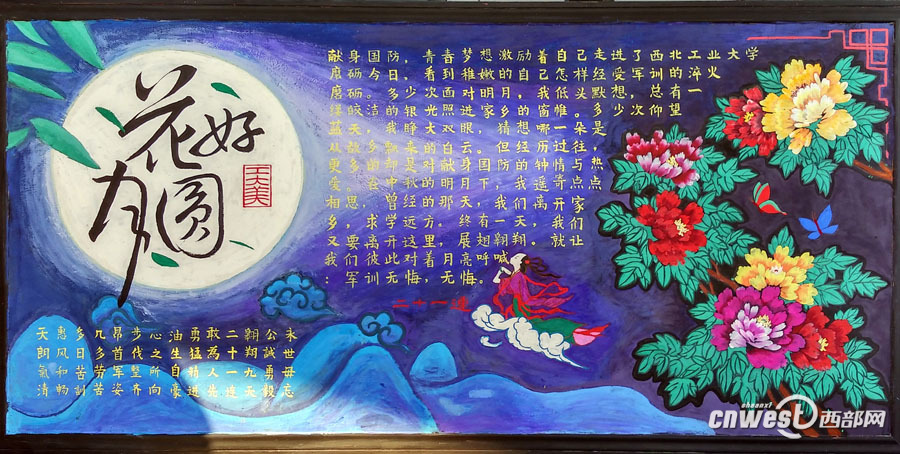 花好月圆
献身国防，青春梦想激励着自己走进了西北工业大学
磨砺今日，看到稚嫩的自己怎样经受军训的淬火
磨砺。多少次面对明月，我低头默想，总有一
缕皎洁的银光照进家乡的窗帷。多少次仰望
蓝天，我睁大双眼，猜想哪一朵是
从故乡飘来的白云。但经历过往，
更多的却是对献身国防的钟情与热
爱。在中秋的明月下，我遥寄点点
相思，曾经的那天，我们离开家
乡，求学远方。终有一天，我们
又要离开这里，展翅翱翔。就让
我们彼此对着月亮呼喊
：军训无悔，无悔。
二十一連
天朗氣清
惠风和畅
多日苦训
几多劳苦
昂首军姿
步伐整齐
心之所向
油生自豪
勇猛精进
敢為人先
二十一连
翱翔九天
公誠勇毅
永世毋忘
shaanxi
cnwest西部网